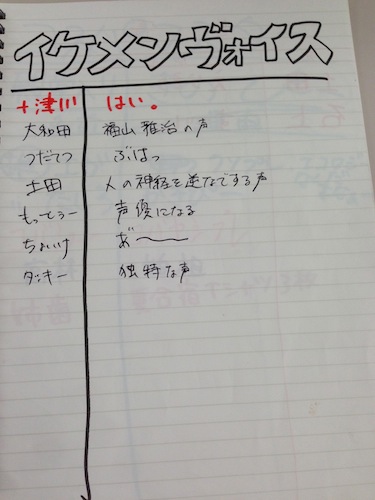 イケメンヴォイス
+津川 はい。
大和田 福山雅治の声
つだてつ ぶはっ
土田 人の神経を逆なでする声
もってぃー 声優になる
ちょいけ あ゛〜
タッキー 独特な声